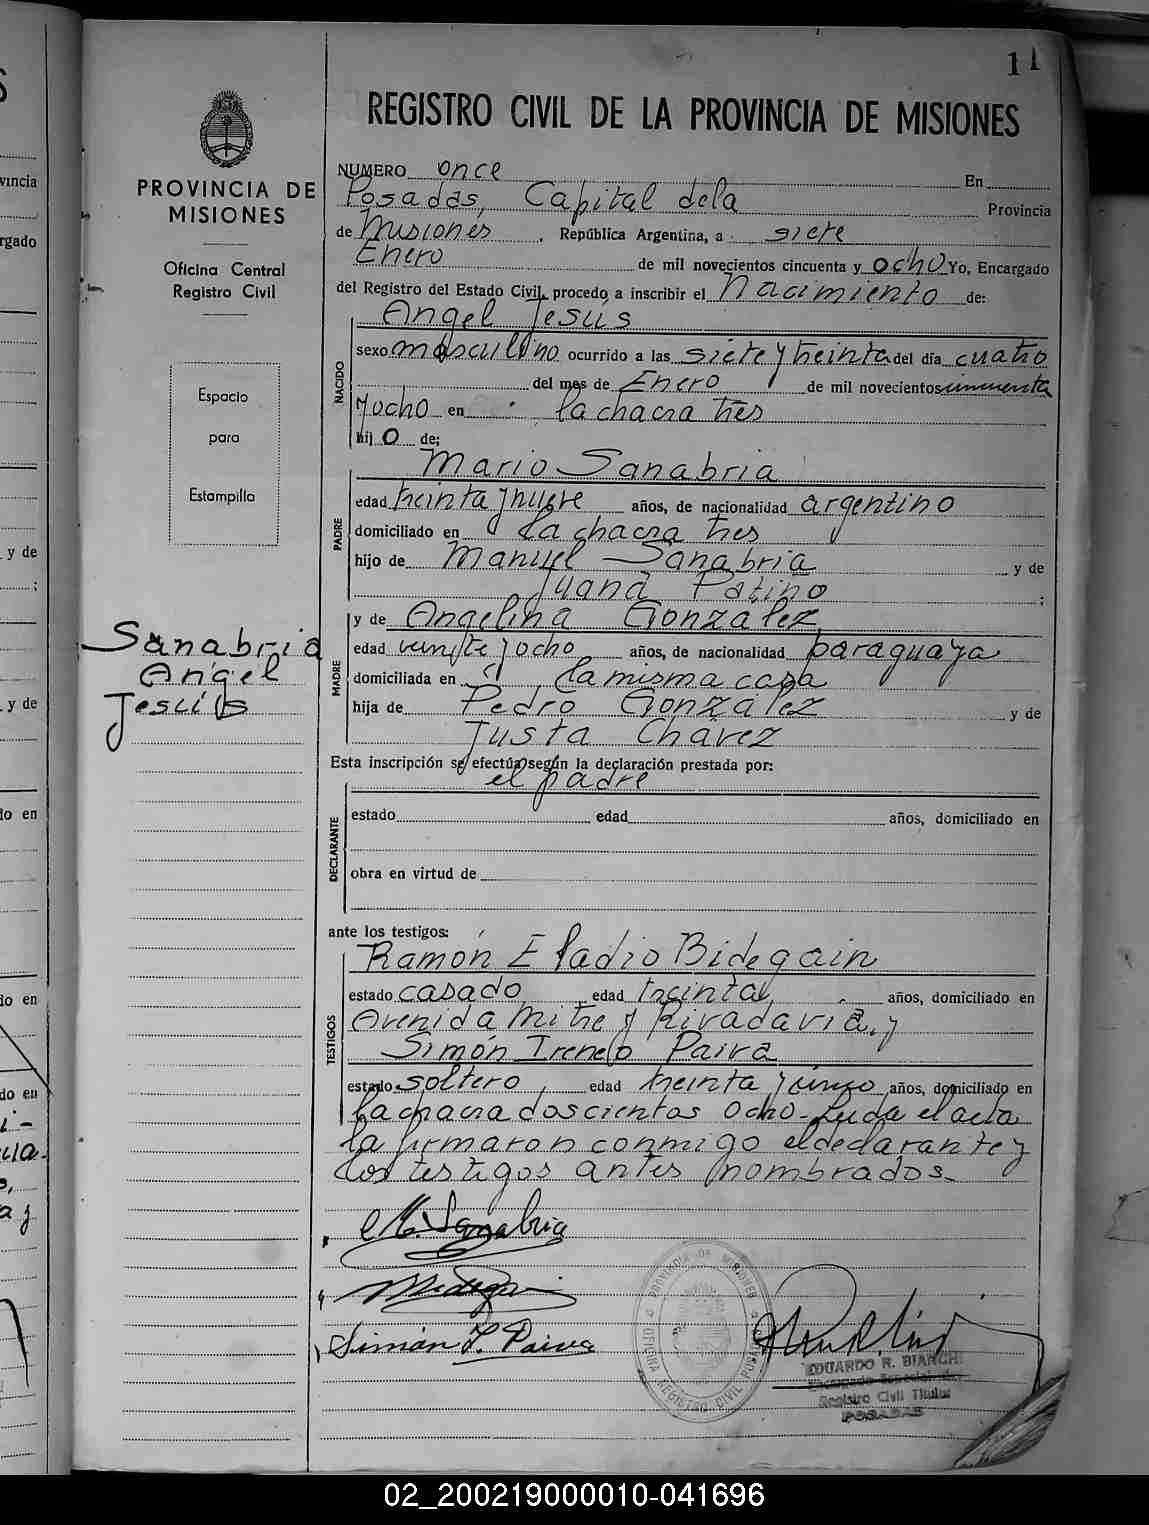 11
REGISTRO CIVIL DE LA PROVINCIA DE MISIONES
PROVINCIA DE
MISIONES
Oficina Central
Registro Civil
Espacio
para
Estampilla
Sanabria
Angel
Jesús
NUMERO once En
Posadas, Capital dela Provincia
de Misiones, República Argentina, a siete
Enero de mil novecientos cincuenta y ocho Yo, Encargado
del Registro del Estado Civil, procedo a inscribir el Nacimiento de:
NACIDO
Angel Jesús
sexo masculino ocurrido a las siete y treinta del día cuatro
del mes de Enero de mil novecientos cincuenta
y ocho en la chacra tres
hijo de;
PADRE
Mario Sanabria
edad treinta y nueve años, de nacionalidad argentino
domiciliado en la chacra tres
hijo de Manuel Sanabria y de
Juana Patiño ;
MADRE
y de Angelina González
edad veinte y ocho años, de nacionalidad paraguaya
domiciliada en la misma casa
hija de Pedro González y de
Justa Chávez
Esta inscripción se efectúa según la declaración prestada por:
el padre
DECLARANTE
estado edad años, domiciliado en
obra en virtud de
ante los testigos:
TESTIGOS
Ramón Eladio Bidegain
estado casado edad treinta, años, domiciliado en
Avenida Mitre y Rivadavia, y
Simón Ireneo Paiva
estado soltero, edad treinta y cinco años, domiciliado en
la chacra doscientos ocho. Leida el acta
la firmaron conmigo el declarante y
los testigos antes nombrados.
M. Sanabria
Simón I. Paiva
PROVINCIA DE MISIONES
OFICINA REGISTRO CIVIL POSADAS
EDUARDO R. BIANCHI
Registro Civil Titular
POSADAS
02_200219000010-041696